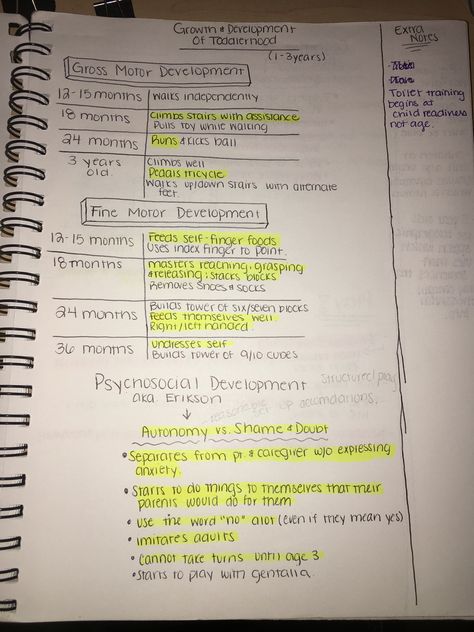 Growth & Development
Of Toddlerhood
(1-3 years)
Gross Motor Development
12-15 months
Walks independently
18 months
Climbs stairs with assistance
Pulls toy while walking
24 months
Runs & kicks ball
3 years
old.
Climbs well
Pedals tricycle
Walks up/down stairs with alternate
feet.
Fine Motor Development
12-15 months
Feeds self-finger foods
Uses index finger to point.
18 months
masters reaching, grasping
& releasing; stacks blocks
Removes shoes & socks
24 months
Builds tower of six/seven blocks
Feeds themselves well
Right/left handed.
36 months
undresses self
Builds tower of 9/10 cubes
Psychosocial Development
aka Erikson
structured play
reasonable set up accomdations.
Autonomy vs. Shame & Doubt
• Separates from pt. & caregiver w/o expressing
anxiety.
• Starts to do things to themselves that their
parents would do for them
• use the word "no" alot (even if they mean yes)
• imitates adults
• Cannot take turns until age 3
• Starts to play with gentalia
Extra
Notes
Toilet training
begins at
child readiness
not age.